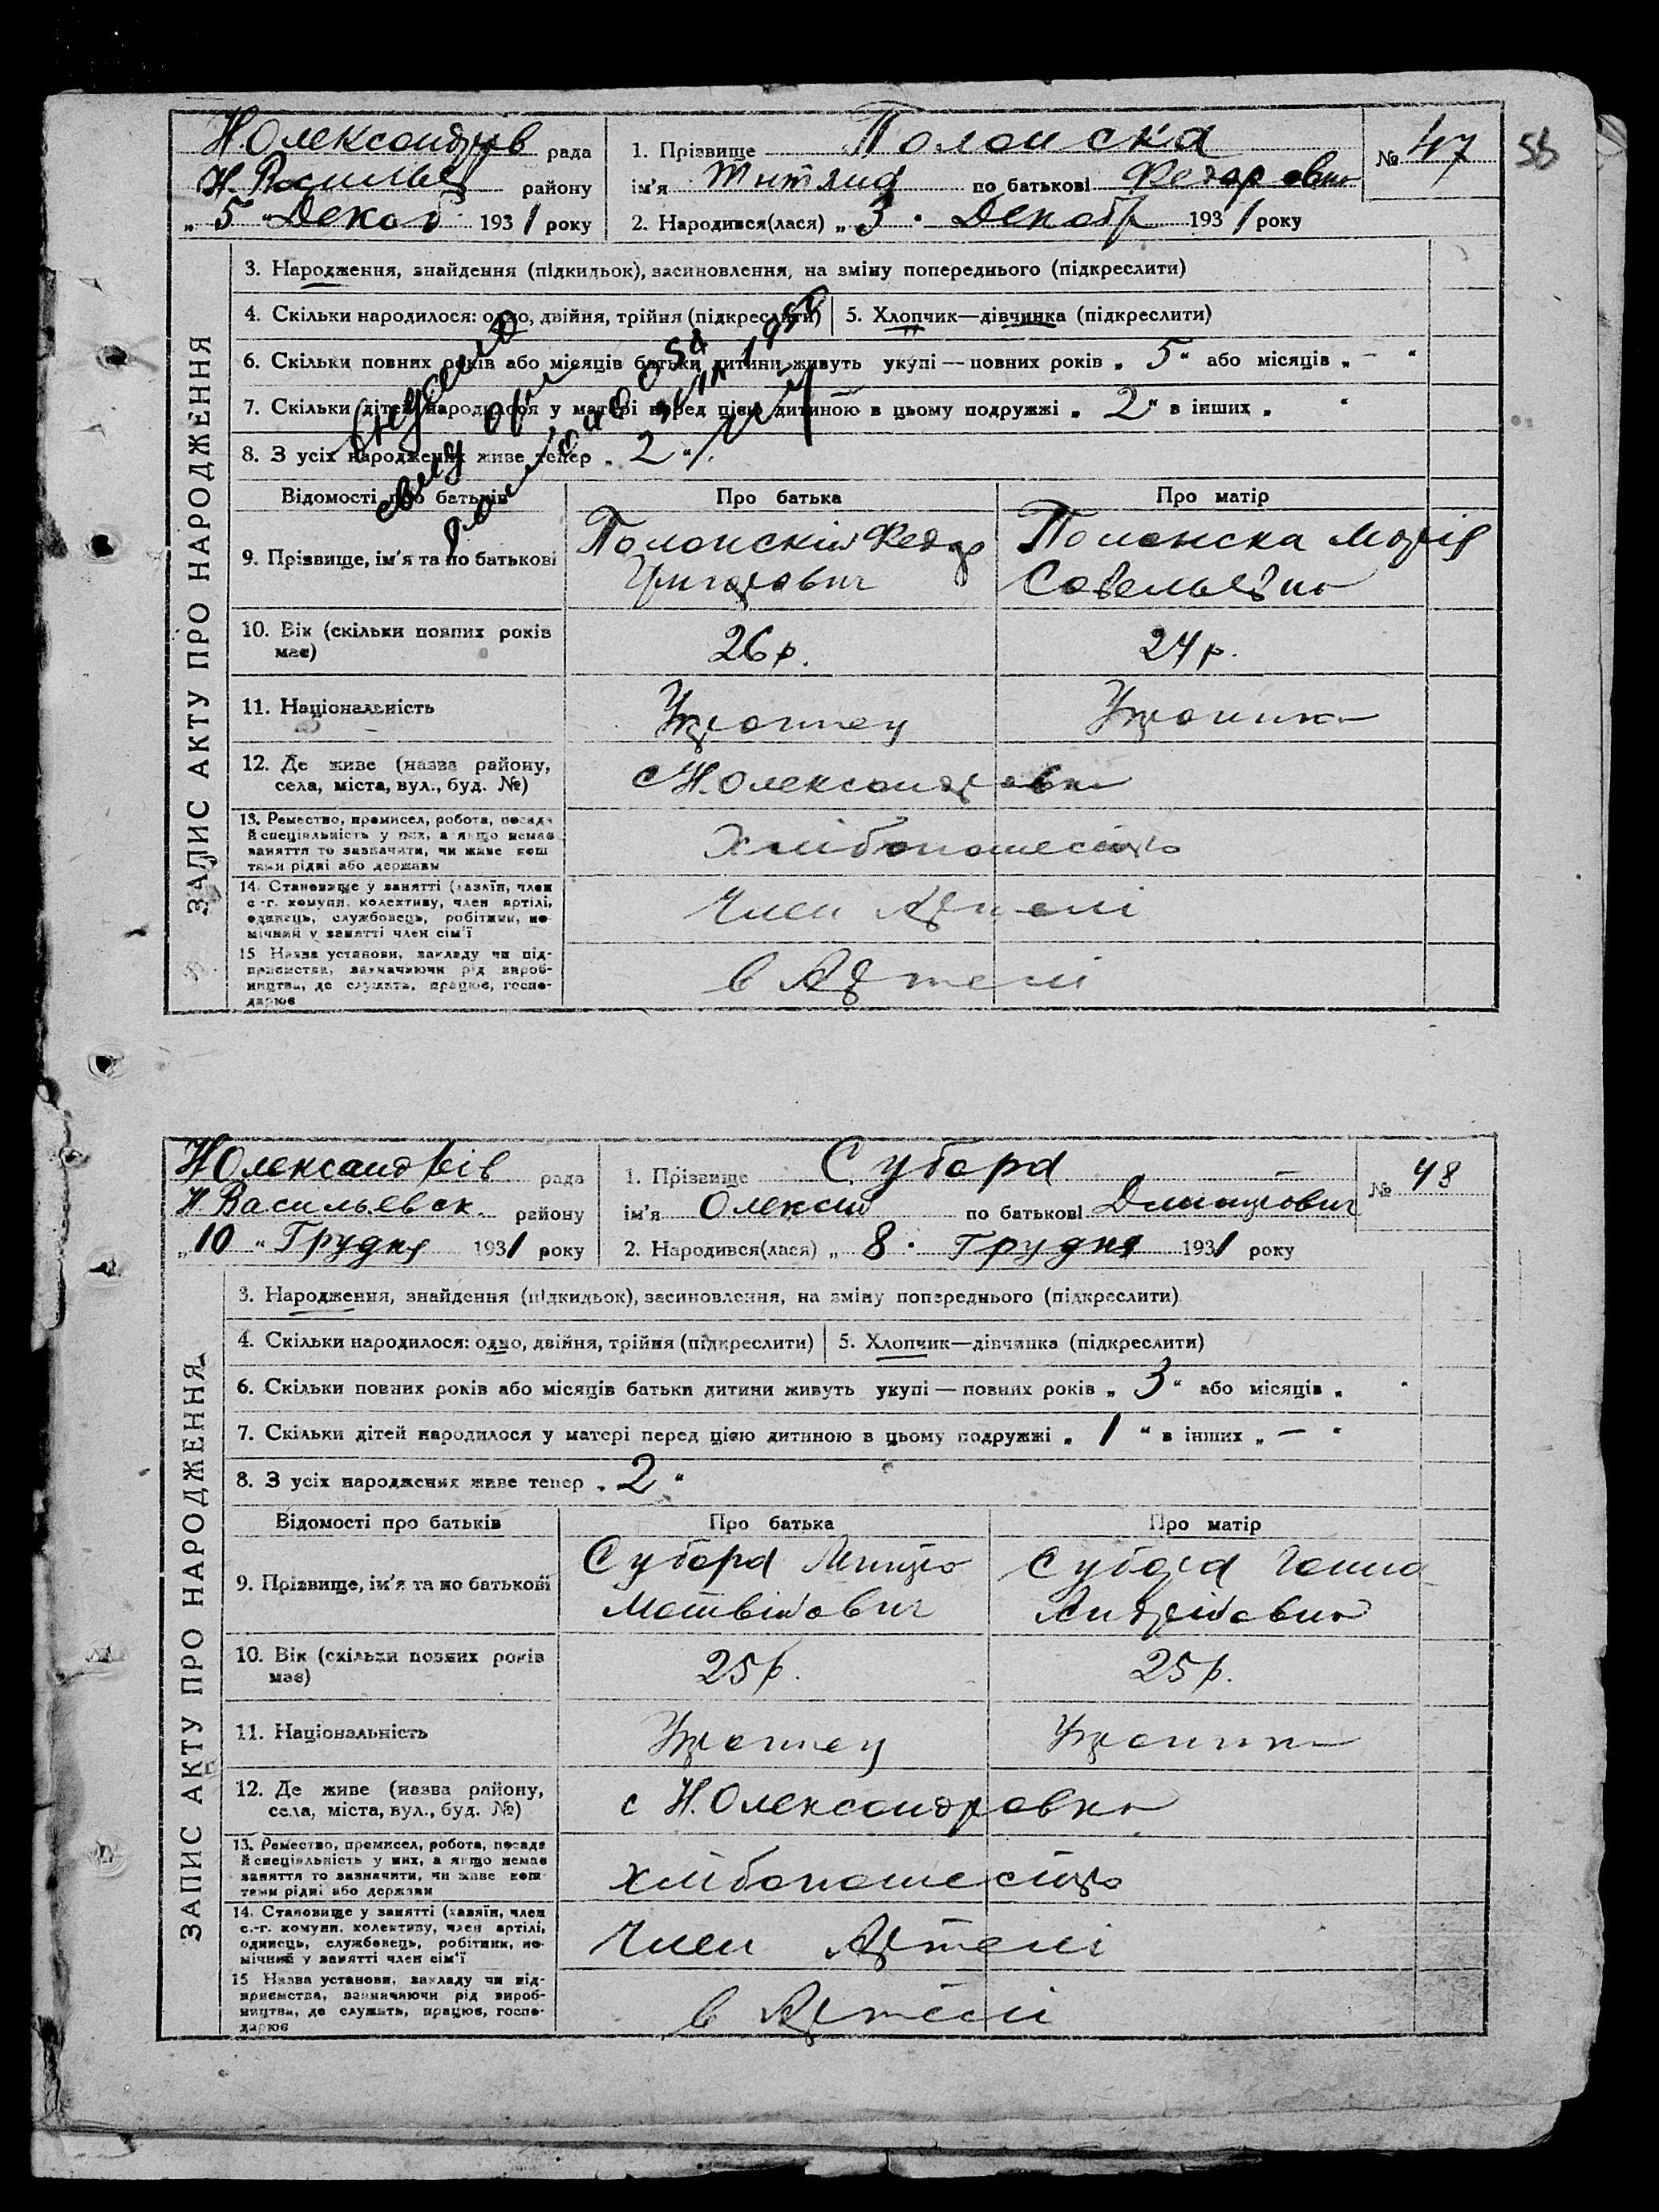 Н.Олександрів рада
1. Прізвище Полонска
№ 47
55
Н. Василье району
ім'я по батькові Федоровна
„5“ Декаб 1931 року
2. Народився(лася) „3“ Декабр 1931 року
ЗАПИС АКТУ ПРО НАРОДЖЕННЯ
3. Народження, знайдення (підкидьок), засиновлення, на зміну попереднього (підкреслити)
4. Скільки народилося: одно, двійня, трійня (підкреслити) 5. Хлопчик—дівчинка (підкреслити)
6. Скільки повних років або місяців батьки дитини живуть укупі — повних років „5“ або місяців „—“
7. Скільки дітей народилося у матері перед цією дитиною в цьому подружжі „2“ в інших „ “
8. З усіх народжених живе тепер „2“
Відомості про батьків Про батька Про матір
9. Прізвище, ім'я та по батькові
Полонский Федор
Григорович
Полонска Марія
Савельевна
10. Вік (скільки повних років
має)
26 р. 24 р.
11. Національність Українец Українка
12. Де живе (назва району,
села, міста, вул., буд. №)
с Н.Олександровка
13. Ремество, промисел, робота, посада
й спеціяльність у них, а якщо немає
заняття то зазначити, чи живе кош
тами рідні або держави
Хлібопашество
14. Становище у занятті (хазяїн, член
с.-г. комуни, колективу, член артілі,
одинець, службовець, робітник, по-
мічний у занятті член сім'ї
Член Артелі
15 Назва установи, закладу чи під-
приємства, зазначаючи рід вироб-
ництва, де служить, працює, госпо-
дарює
в Артелі
Н Олександрів рада
1. Прізвище Субора
№ 48
Н Васильевск. району
ім'я Олексій по батькові Дмитрович
„10“ Грудня 1931 року
2. Народився(лася) „8“ Грудня 1931 року
ЗАПИС АКТУ ПРО НАРОДЖЕННЯ
3. Народження, знайдення (підкидьок), засиновлення, на зміну попереднього (підкреслити)
4. Скільки народилося: одно, двійня, трійня (підкреслити) 5. Хлопчик—дівчинка (підкреслити)
6. Скільки повних років або місяців батьки дитини живуть укупі — повних років „3“ або місяців „ “
7. Скільки дітей народилося у матері перед цією дитиною в цьому подружжі „1“ в інших „—“
8. З усіх народжених живе тепер „2“
Відомості про батьків Про батька Про матір
9. Прізвище, ім'я та по батькові
Субора Митро
Матвійович
Субора Ганна
Андрійовна
10. Вік (скільки повних років
має)
25 р. 25 р.
11. Національність Українец Українка
12. Де живе (назва району,
села, міста, вул., буд. №)
с Н.Олександровка
13. Ремество, промисел, робота, посада
й спеціяльність у них, а якщо немає
заняття то зазначити, чи живе кош-
тами рідні або держави
хлібопашество
14. Становище у занятті (хазяїн, член
с.-г. комуни, колективу, член артілі,
одинець, службовець, робітник, по-
мічний у занятті член сім'ї
Член Артелі
15 Назва установи, закладу чи під-
приємства, зазначаючи рід вироб-
ництва, де служить, працює, госпо-
дарює
в Артелі